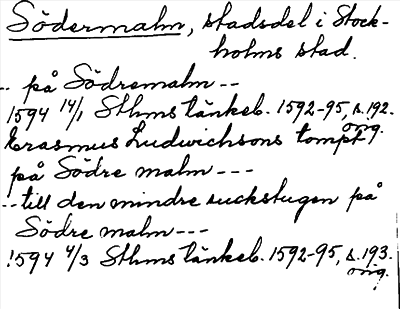 Södermalm, stadsdel i Stock-
holms stad.
-- på Södremalm --
1594 14/1 Sthms tänkeb. 1592-95, s. 192.
orig.
Erasmus Ludwichsons tompt
på Södre malm ---
-- till den mindre suckstugen på
Södre malm ---
1594 4/3 Sthms tänkeb. 1592-95, s. 193.
orig.